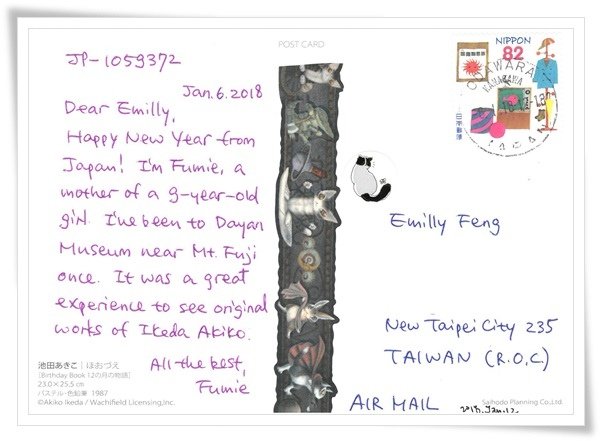 POST CARD
JP-1059372
Jan.6.2018
Dear Emilly,
Happy New Year from
Japan! I'm Fumie, a
mother of a 9-year-old
girl. I've been to Dayan
Museum near Mt. Fuji
once. It was a great
experience to see original
works of Ikeda Akiko.
All the best,
Fumie
池田あきこ | ほおづえ
[Birthday Book 12の月の物語]
23.0×25.5 cm
パステル・色鉛筆 1987
©Akiko Ikeda / Wachifield Licensing,Inc.
NIPPON
82
日本郵便
Emilly Feng
New Taipei City 235
TAIWAN (R.O.C)
AIR MAIL
2018.Jan.12
Saihodo Planning Co.,Ltd.